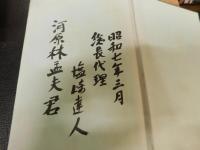 昭和七年三月
総長代理
塩崎達人
河原林孟夫君